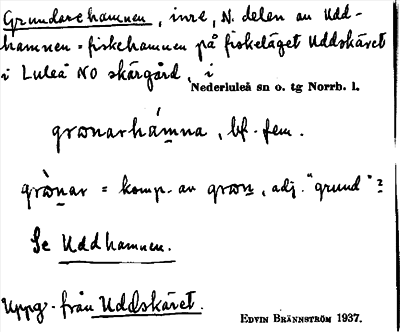 Grundarehamnen, inre, N. delen av Udd-
hamnen = fiskehamnen på fiskeläget Uddskäret
i Luleå NO skärgård, i
Nederluleå sn o. tg Norrb. l.
grɷnarhámna, bf. fem.
grɷ̀nar = komp. av grɷn, adj. "grund"?
Se Uddhamnen.
Uppg. från Uddskäret.
EDVIN BRÄNNSTRÖM 1937.